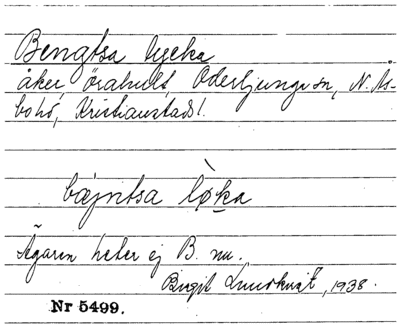 Bengtsa lycka
åker, Örahult, Oderljunga sn, N. Ås-
bo hd, Kristianstads l.
bæjntsa lø̀ka
Ägaren heter ej B. nu.
Birgit Lundkvist, 1938.
Nr 5499.